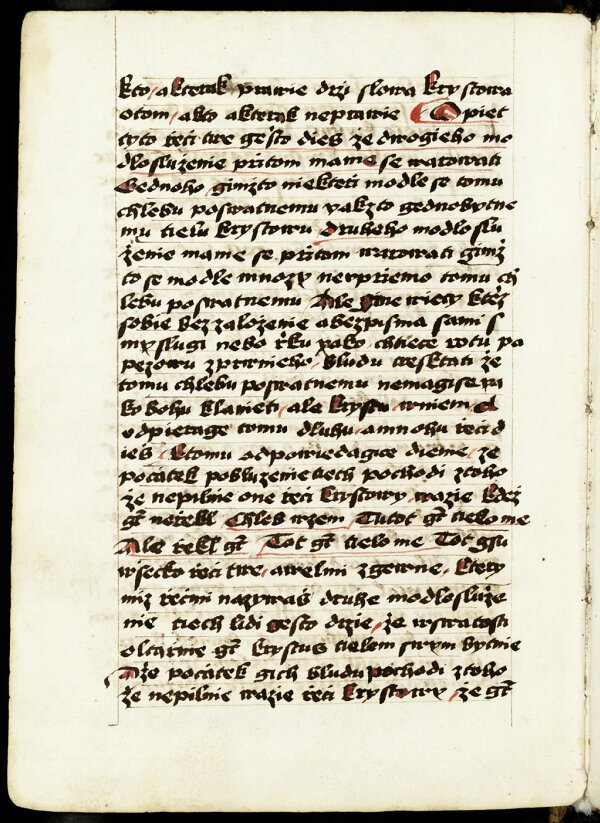 kto a kterak prawie drzi slowa krystowa
otom, a kto a kterak neprawie Opiet
tyto řeči twe gešto dieš že dwogieho mo
dlosluženie přitom mame se warowati
Gednoho gimžto niekteři modle se tomu
chlebu poswatnemu yakzto gednobytne
mu tielu krystowu druheho modloslu
ženie mame se přitom warowati gimž
to se modle mnozy newpřiemo tomu ch
lebu poswatnemu Ale gine wiecy kteež
sobie bez založenie a bez pisma sami s
myslugi nebo řku yako chtiece wotu pa
pezowu z prwnieho bludu tresktati že
tomu chlebu poswatnemu nemagi se ya
ko bohu klanieti, ale krystu wniem,
odpierage tomu dluhu a mnohu řeči d
ieš, ktomu odpowiedagice dieme, že
počatek pobluzenie tiech pochodi ztoho
že nepilnie one řeči krystowy wazie kdež
gt neřekl Chleb wzem Tutot gt tielo me
Ale řekl gt Tot gt tielo me Tot gsu
wsecko řeči twe, a welmi zgewne, ktery
miz řečmi nazywaš druhe modlosluže
nie tiech lidi gešto drzie, že wswatosti
oltařnie gt krystus tielem swym bytnie
A že počatek gich bludu pochodi ztoho
že nepilnie wazie řeči krystowy že gt